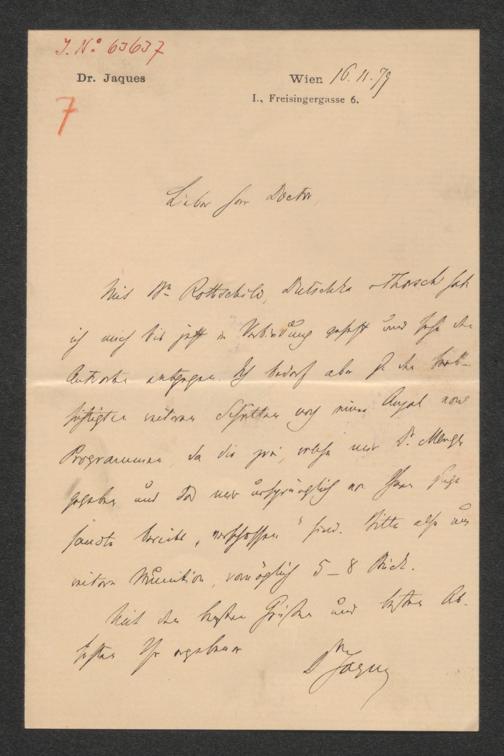 J. No 63637
Dr. Jaques
Wien 16.11.79
I., Freisingergasse 6.
7
Lieber Herr Doctor,
Mit Rothschild, Dutschka Thorsch hab
ich mich bis jetzt in Verbindung gesetzt und sehe den
Antworten entgegen. Ich bedarf aber zu den
weiteren Schritten noch einer Anzahl von
Programmen da die zwei, welche mir Dr. Menger
gegeben und die mir ursprünglich
bereits "verschossen" sind. Bitte also um
weitere Munition, womöglich 5-8 Stück.
Mit den besten Grüßen und
Ihr ergebener
Dr Jaques